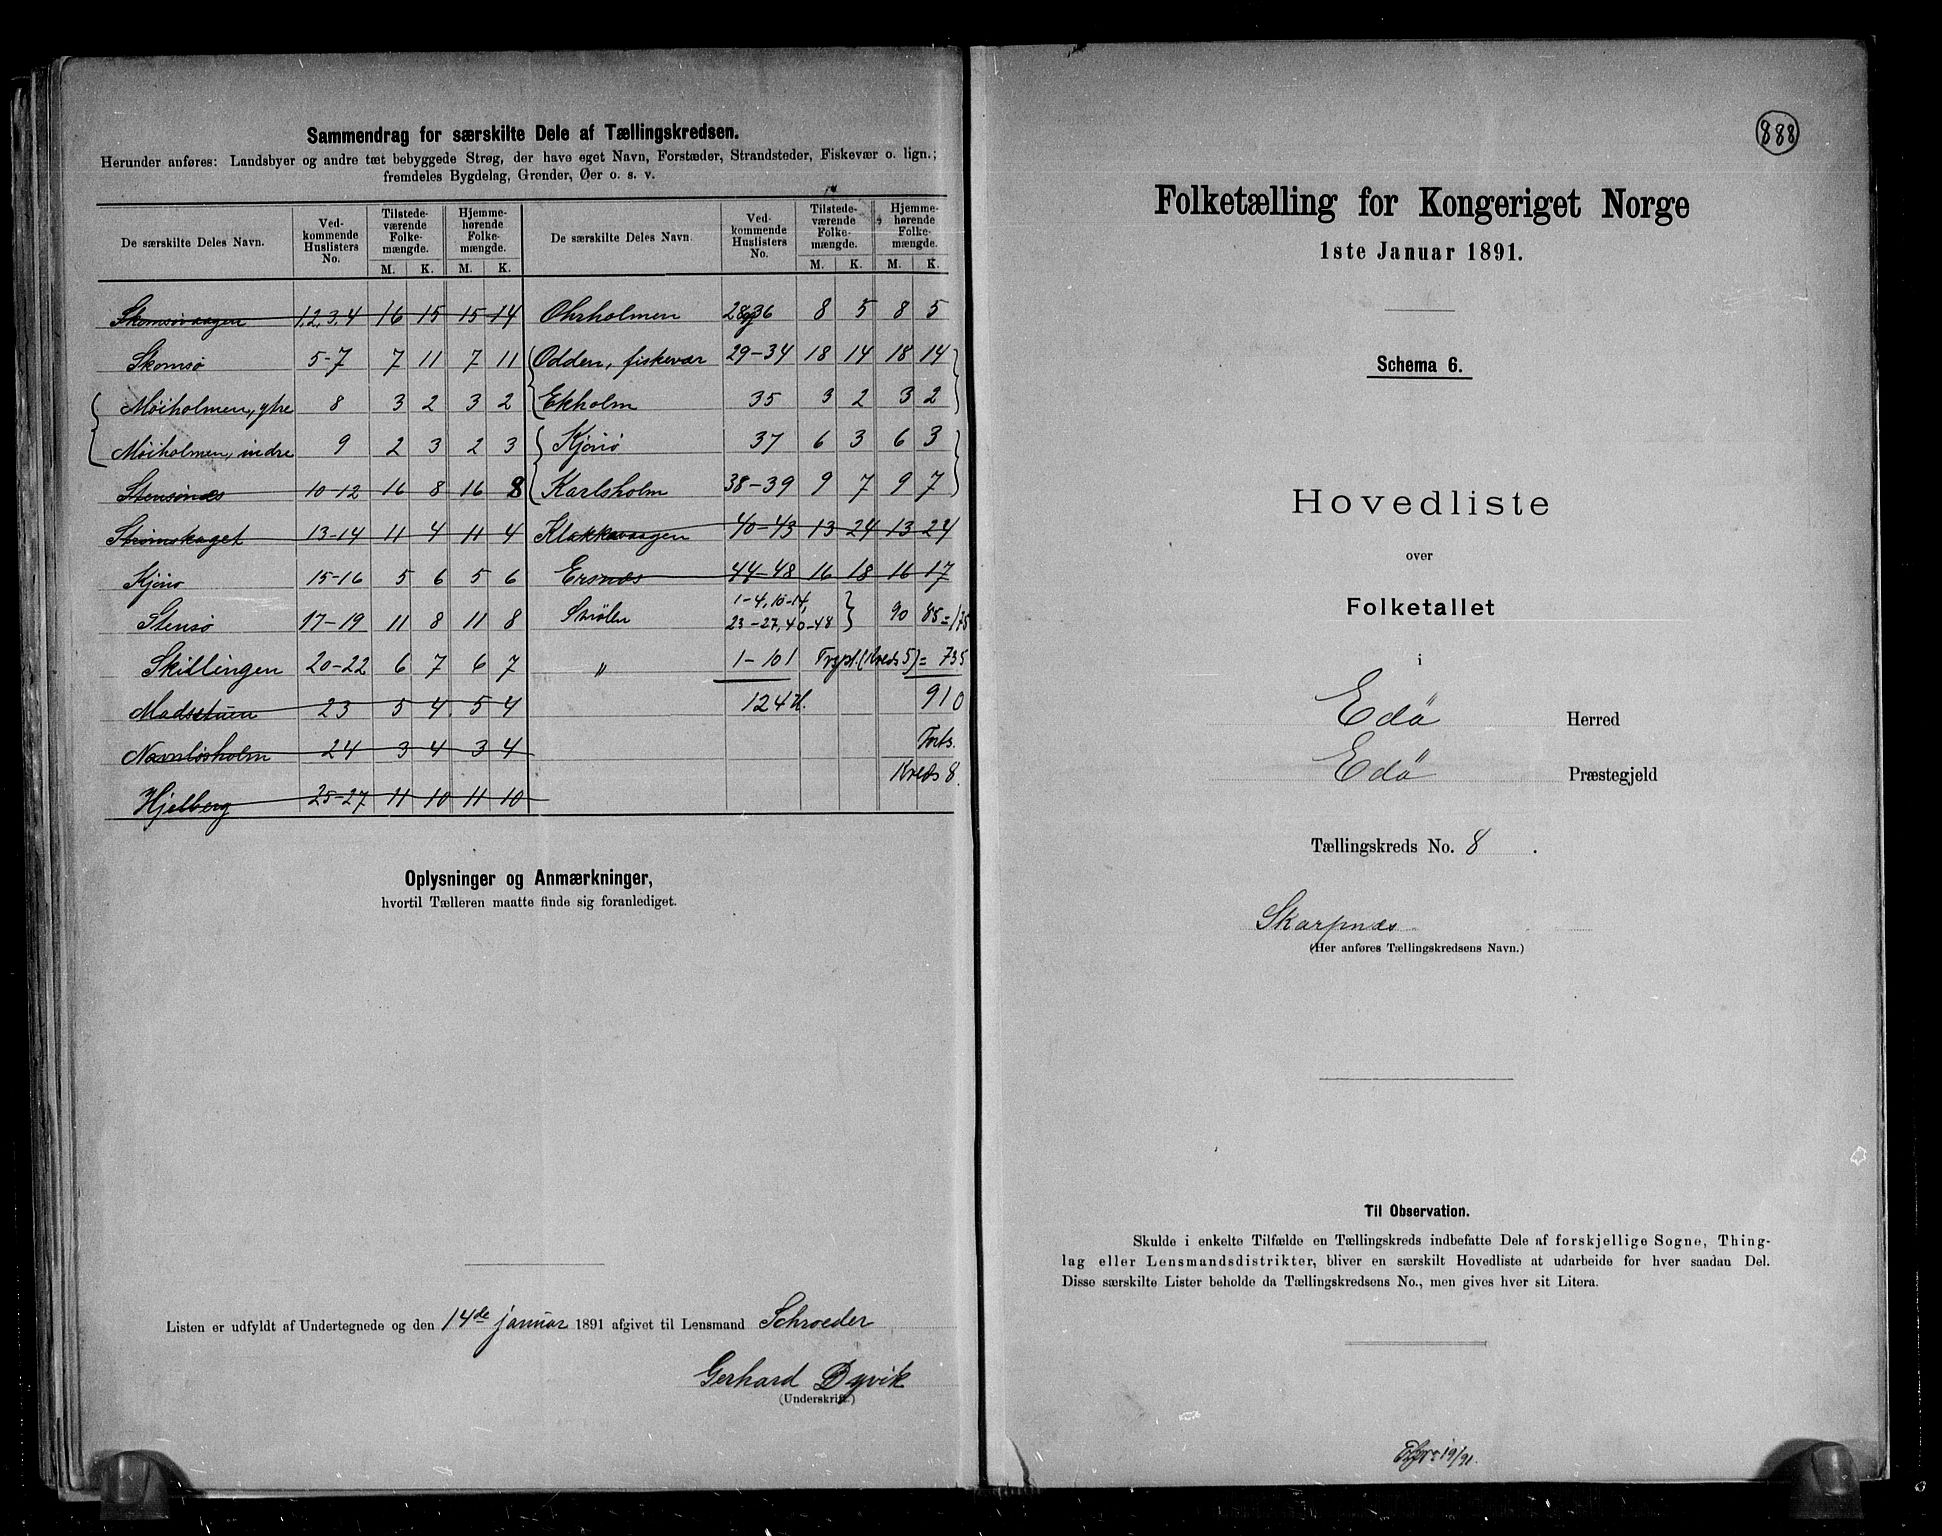 Sammendrag for særskilte Dele af Tællingskredsen.
Herunder anføres: Landsbyer og andre tæt bebyggede Strøg, der have eget Navn, Forstæder, Strandsteder, Fiskevær o. lign.;
fremdeles Bygdelag, Grender, Øer o. s. v.
De særskilte Deles Navn. Vedkommende Huslisters No. Tilstedeværende Folkemængde. M. K. Hjemmehørende Folkemængde. M. K. De særskilte Deles Navn. Vedkommende Huslisters No. Tilstedeværende Folkemængde. M. K. Hjemmehørende Folkemængde. M. K.
Skomsøvaagen 1,2,3,4 16 15 15 14 Ohrholmen 28 og 36 8 5 8 5
Skomsø 5-7 7 11 7 11 Odden, fiskevær 29-34 18 14 18 14
Møiholmen, ytre 8 3 2 3 2 Ekholm 35 3 2 3 2
Møiholmen, indre 9 2 3 2 3 Kjørø 37 6 3 6 3
Stensønæs 10-12 16 8 16 8 Karlsholm 38-39 9 7 9 7
Strømskaget 13-14 11 4 11 4 Klakkavaagen 40-43 13 24 13 24
Kjørø 15-16 5 6 5 6 Ersnæs 44-48 16 18 16 17
Stensø 17-19 11 8 11 8 Smølen 1-4, 10-14, 23-27, 40-48 90 85=175
Skillingen 20-22 6 7 6 7 " 1-101 (Kreds 5) = 735
Madsstuen 23 5 4 5 4 124 H. 910
Navnløsholm 24 3 4 3 4 Forts.
Kreds 8.
Hjelberg 25-27 11 10 11 10
Oplysninger og Anmærkninger,
hvortil Tælleren maatte finde sig foranlediget.
Listen er udfyldt af Undertegnede og den 14de januar 1891 afgivet til Lensmand Schroeder
Gerhard Dyvik
(Underskrift.)
888
Folketælling for Kongeriget Norge
1ste Januar 1891.
Schema 6.
Hovedliste
over
Folketallet
i
Edö Herred
Edö Præstegjeld
Tællingskreds No. 8.
Skarpnæs
(Her anføres Tællingskredsens Navn.)
Til Observation.
Skulde i enkelte Tilfælde en Tællingskreds indbefatte Dele af forskjellige Sogne, Thing-
lag eller Lensmandsdistrikter, bliver en særskilt Hovedliste at udarbeide for hver saadan Del.
Disse særskilte Lister beholde da Tællingskredsens No., men gives hver sit Litera.
19/91.